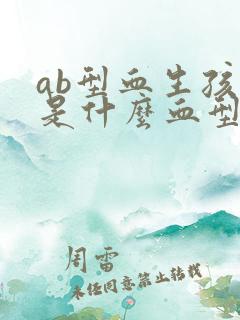 ab型血生孩
是什麽血型
周雷
未经同意禁止转载